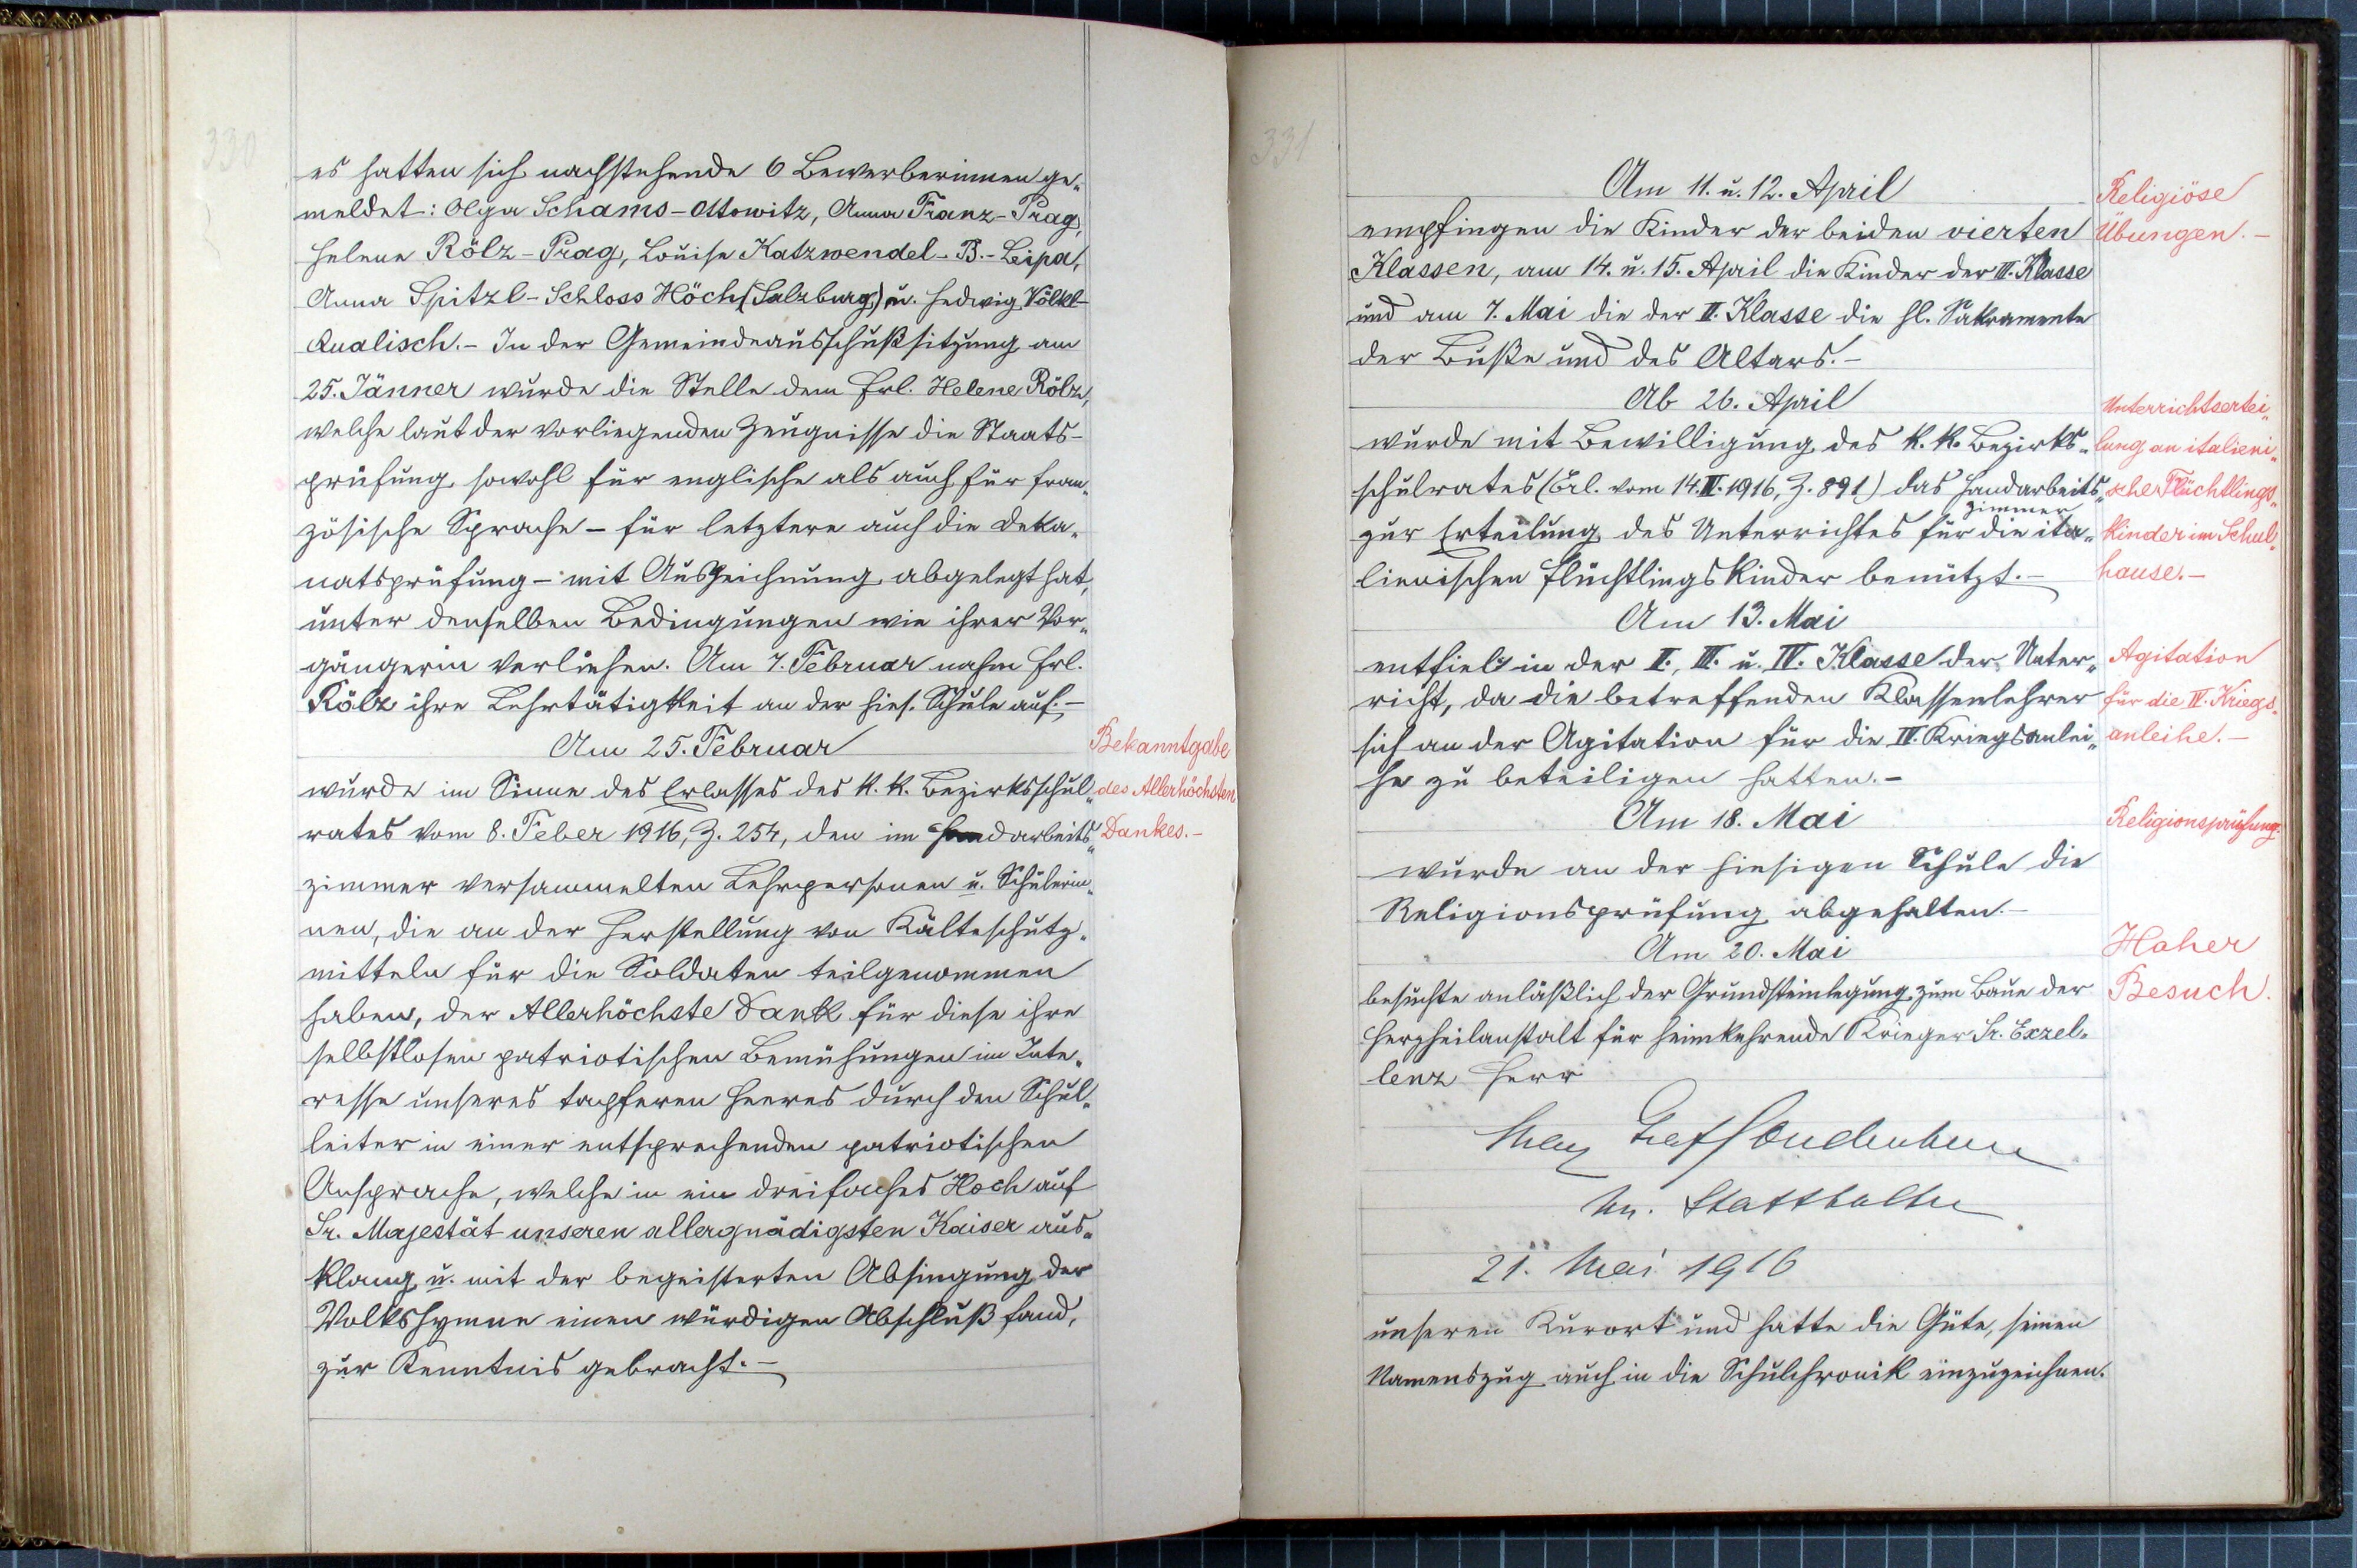 330
es hatten sich nachstehende 6 Bewerberinnen ge-
meldet: Olga Schams-Ottowitz, Anna Franz-Prag,
Helene Rölz-Prag, Louise Katzwendel-B.-Leipa,
Anna Spitzl-Schloss Höch (Salzburg) u. Hedwig Völkl-
Qualisch.- In der Gemeindeausschußsitzung am
25. Jänner wurde die Stelle dem Frl. Helene Rölz,
welche laut der vorliegenden Zeugnisse die Staats-
prüfung sowohl für englische als auch für fran-
zösische Sprache - für letztere auch die Deka-
natsprüfung - mit Auszeichnung abgelegt hat,
unter denselben Bedingungen wie ihrer Vor-
gängerin verliehen. Am 7. Februar nahm Frl.
Rölz ihre Lehrtätigkeit an der hies. Schule auf.-
Am 25. Februar
Bekanntgabe
des Allerhöchsten
Dankes.-
wurde im Sinne des Erlasses des k. k. Bezirksschul-
rates vom 8. Feber 1916, Z. 254, den im Handarbeits-
zimmer versammelten Lehrpersonen u. Schülerin-
nen, die an der Herstellung von Kälteschutz-
mitteln für die Soldaten teilgenommen
haben, der Allerhöchste Dank für diese ihre
selbstlosen patriotischen Bemühungen im Inte-
resse unseres tapferen Heeres durch den Schul-
leiter in einer entsprechenden patriotischen
Ansprache, welche in ein dreifaches Hoch auf
Sr. Majestät unseren allergnädigsten Kaiser aus-
klang u. mit der begeisterten Absingung der
Volkshymne einen würdigen Abschluß fand,
zur Kenntnis gebracht.-
331
Am 11. u. 12. April
Religiöse
Übungen.-
empfingen die Kinder der beiden vierten
Klassen, am 14. u. 15. April die Kinder der III. Klasse
und am 7. Mai die der II. Klasse die hl. Sakramente
der Buße und des Altars.-
Ab 26. April
Unterrichtsertei-
lung an italieni-
scher Flüchtlings-
kinder im Schul-
hause.-
wurde mit Bewilligung des k. k. Bezirks-
schulrates (Erl. vom 14. IV. 1916, Z. 891) das Handarbeits-
zimmer
zur Erteilung des Unterrichtes für die ita-
lienischen Flüchtlingskinder benützt.-
Am 13. Mai
entfiel in der II., III. u. IV. Klasse der Unter-
richt, da die betreffenden Klassenlehrer
sich an der Agitation für die IV. Kriegsanlei-
he zu beteiligen hatten.-
Agitation
für die IV. Kriegs-
anleihe.-
Am 18. Mai
Religionsprüfung.
wurde an der hiesigen Schule die
Religionsprüfung abgehalten.-
Am 20. Mai
Hoher
Besuch.
besuchte anläßlich der Grundsteinlegung zum Baue der
Herzheilanstalt für heimkehrende Krieger Sr. Exzel-
lenz Herr
Max Graf Coudenhove
Statthalter
21. Mai 1916
unseren Kurort und hatte die Güte, seinen
Namenszug auch in die Schulchronik einzuzeichnen.